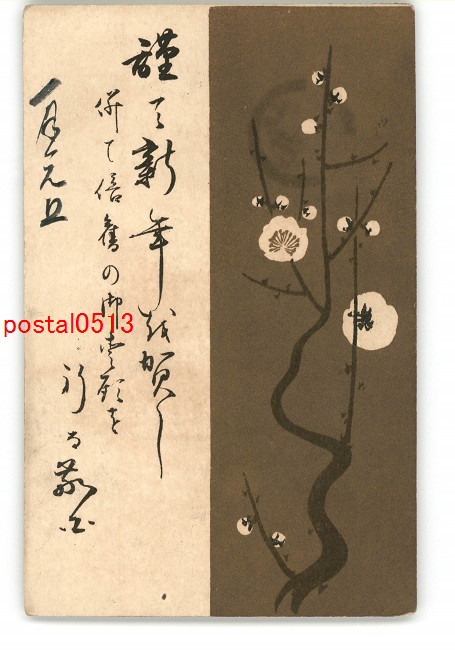 謹て新年を賀し
併て倍旧の御愛顧を
祈る 敬白
一月元旦
postal0513